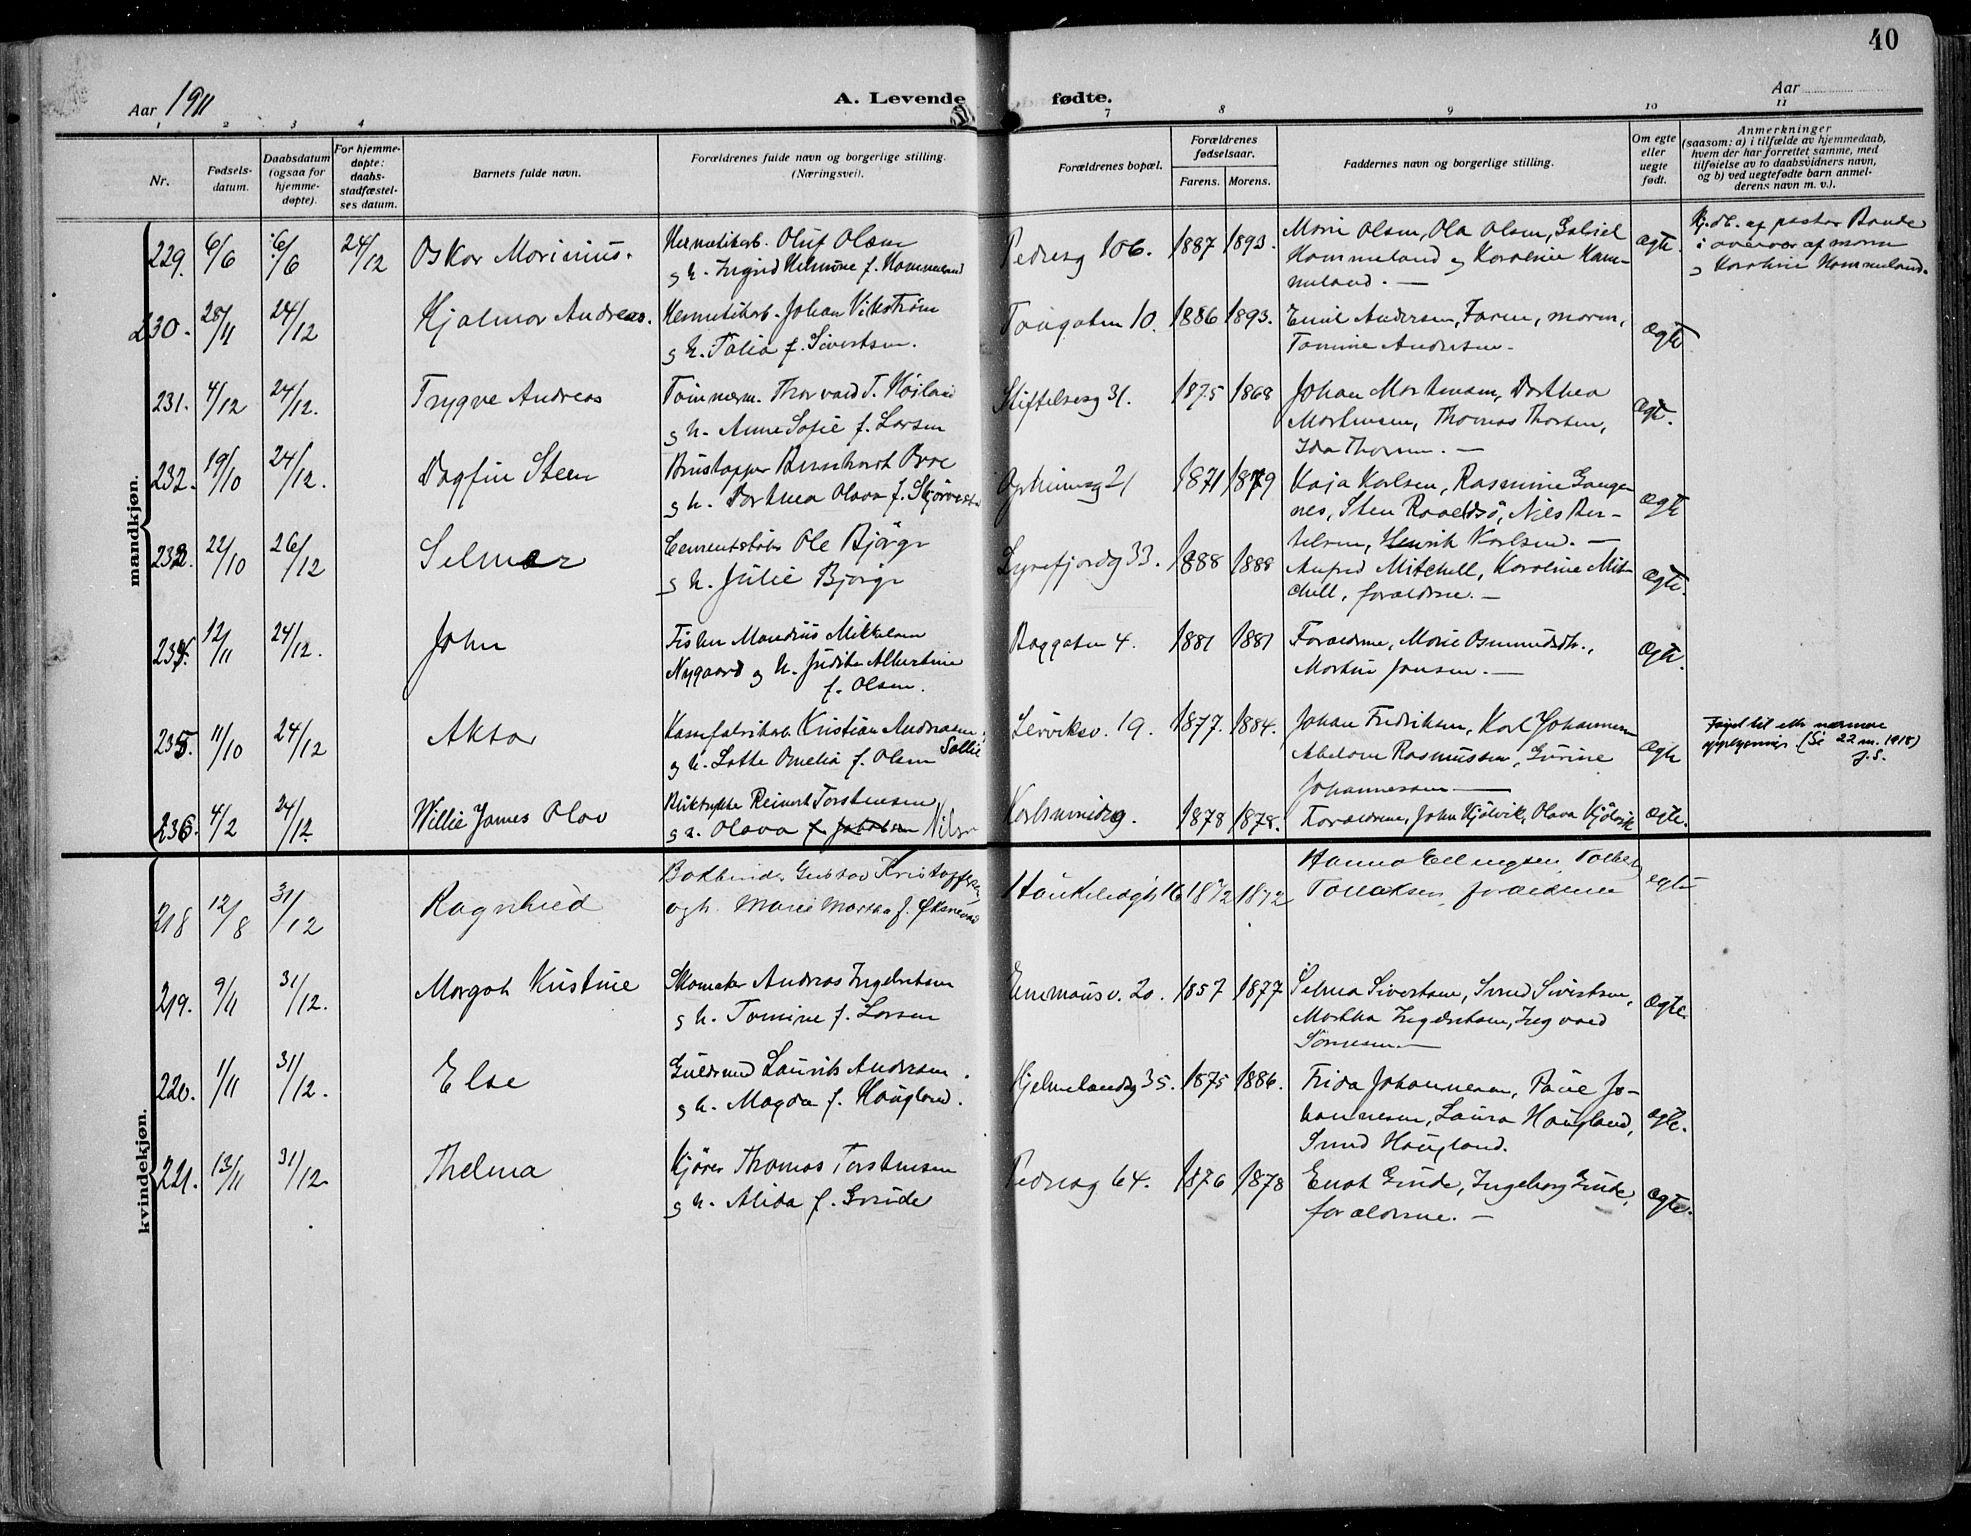 40
Aar 1911
A. Levende fødte.
Aar
1 2 3 4 7 8 9 10 11
Nr.
Fødsels-
datum.
Daabsdatum
(ogsaa for
hjemme-
døpte).
For hjemme-
døpte:
daabs-
stadfæstel-
ses datum.
Barnets fulde navn.
Forældrenes fulde navn og borgerlige stilling.
(Næringsvei).
Forældrenes bopæl.
Forældrenes
fødselsaar.
Farens. Morens.
Faddernes navn og borgerlige stilling.
Om egte
eller
uegte
født.
Anmerkninger
(saasom: a) i tilfælde av hjemmedaab,
hvem der har forrettet samme, med
tilføielse av to daabsvidners navn,
og b) ved uegtefødte barn anmel-
derens navn m. v.).
mandkjøn.
229. 6/6 6/6 24/12 Oskar Marinius.
Hermetikarb. Oluf Olsen
g h. Ingrid Helmine f. Hammeland
Pedersg 106. 1887 1893.
Marie Olsen, Ola Olsen, Gabriel
Hammeland og Karoline Ham-
meland. —
ægte.
Hj.db. af pastor Bande
i overvær af moren
g Karoline Hammeland.
230. 28/11 24/12 Hjalmar Andreas.
Hermetikarb. Johan Vikstrøm
g h. Talia f. Sivertsen.
Tougaten 10. 1886 1893.
Emil Andersen, Faren, moren,
Tomine Andersen.
ægte
231. 4/12 24/12. Trygve Andreas
Tømmerm. Thorvald T. Høiland
g h. Anne Sofie f. Larsen
Stiftelsesg 31. 1875 1868
Johan Mortensen, Dorthea
Mortensen, Thomas Thorsen,
Ida Thorsen. —
ægte.
232. 19/10 24/12. Dagfin Steen
g h. Dorthea Olava f.
21 1871 1879
Kaja Karlsen, Rasmine Gauge-
nes, Sten Roaldsø, Nils Ber-
telsen, Henrik Karlsen. —
ægte
233. 22/10 26/12 Selmer
Cementstøb. Ole Bjørge
g h. Julie Bjørge
Lysefjordg 33. 1888 1888
Alfred Mitchell, Karoline Mit-
chell, forældrene. —
ægte.
234. 12/11 24/12. John
Fisker Mandius Mikkelsen
Nygaard og h. Judith Albertine
f. Olsen.
Baggaten 4. 1881 1881
Forældrene, Marie Osmundsdtr.,
Martin Jansen. —
ægte.
235. 11/10 24/12 Aktor
Kristian Andreasen
Sollie
g h. Lotte Amelia f. Olsen
Lerviksv. 19. 1877. 1884.
Johan Fredriksen, Karl Johannesen
Abelone Rasmussen, Gurine
Johannessen —
ægte
Føiet til efter nærmere
oplysninger. (Se 22 m. 1918)
J.S.
236. 4/2 24/12. Willie James Olav
Bliktrykker Reinert Torstensen
g h. Olava f. Jakobsen Nilsen
Karlsminneg. 1878 1878.
Forældrene, John Kjølvik, Olava Kjølvik
ægte.
kvindekjøn.
218 12/8 31/12 Ragnhild
Bokbinder Gustav Kristoffersen
og h. Marie Martha f. Øksnevad
Haukeligt 16 1872 1872
Hanna Ellingsen, Tolleif
Tollaksen, forældrene
egte
219. 9/11 31/12. Margot Kristine
Skomaker Andreas Ingebretsen
g h. Tomine f. Larsen
Emmausv. 20. 1857 1877
Selma Sivertsen, Svend Sivertsen,
Martha Ingebretsen, Ingvald
Sørensen —
ægte.
220. 1/11 31/12. Else
Guldsmed Laurits Andersen.
g h. Magda f. Haugland.
Hjelmelandsg 35. 1875 1886.
Frida Johannesen, Paul Jo-
hannesen, Laura Haugland,
Svend Haugland.
ægte.
221. 13/11 31/12. Thelma
Kjører Thomas Torstensen
g h. Alida f. Grude
Pedersg 64. 1876 1878
Enok Grude, Ingeborg Grude,
forældrene. —
ægte.